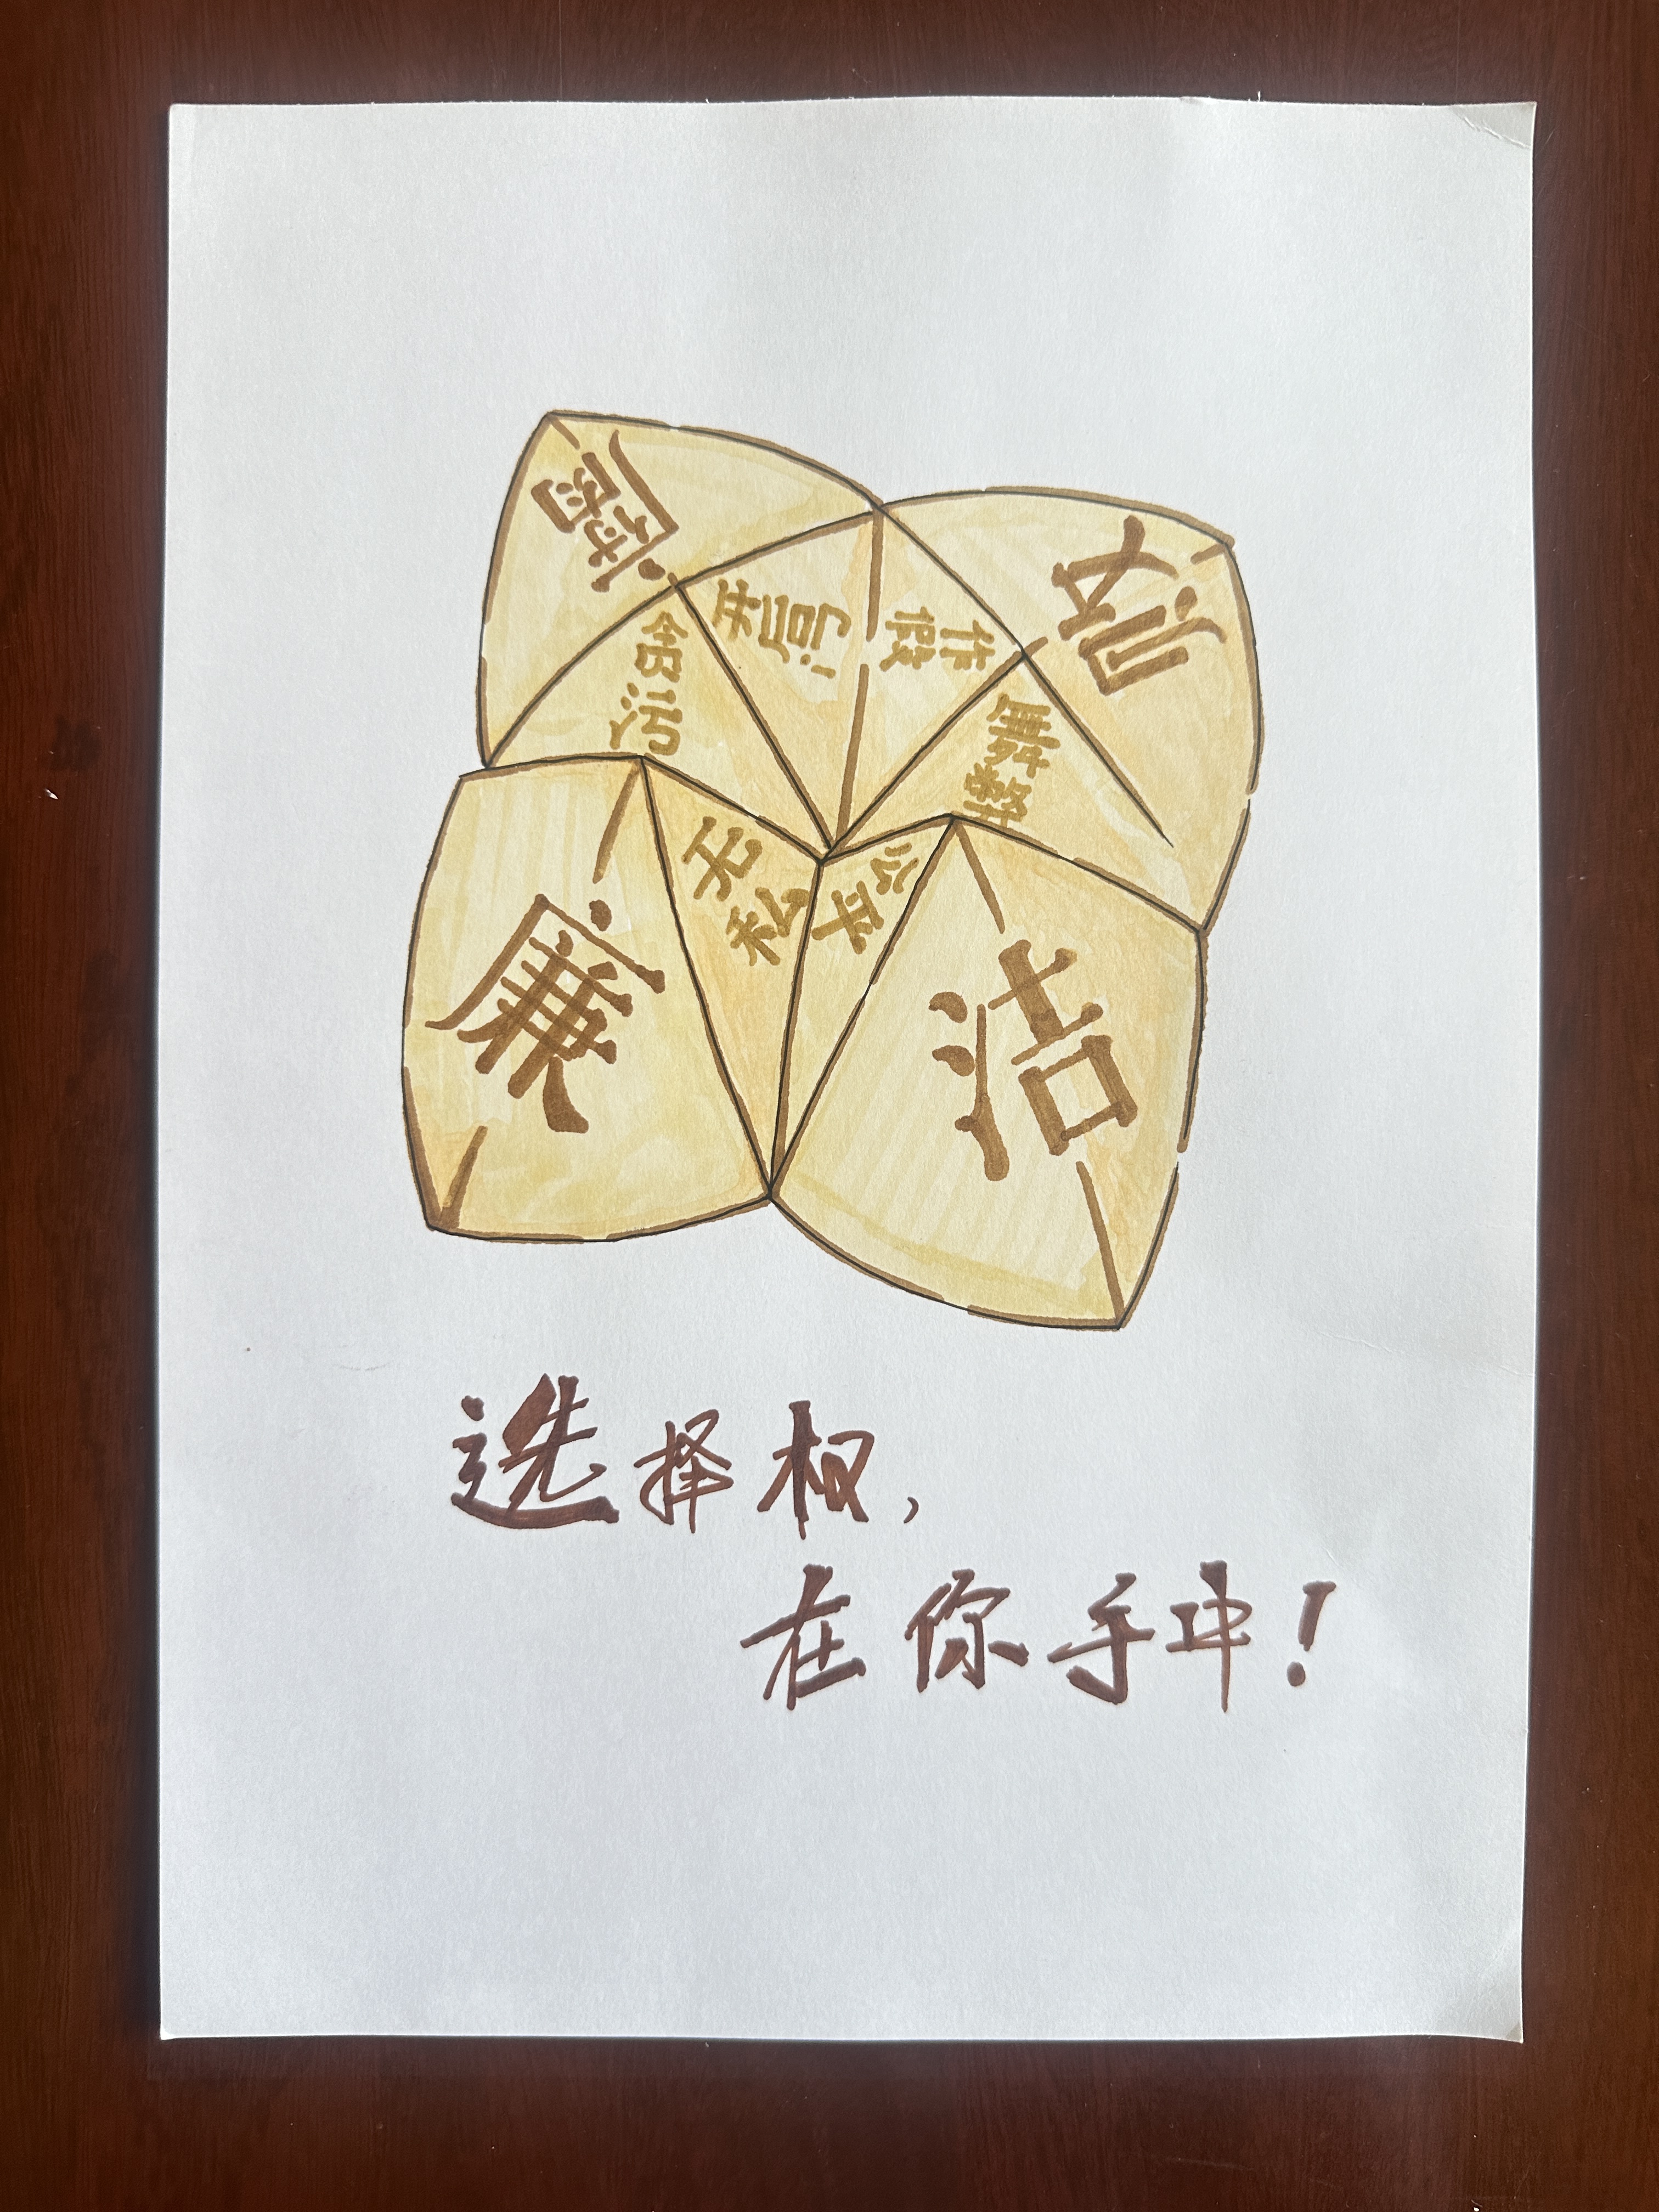 腐
败
贪污
作假
舞弊
无私
公平
廉
洁
选择权，
在你手中！